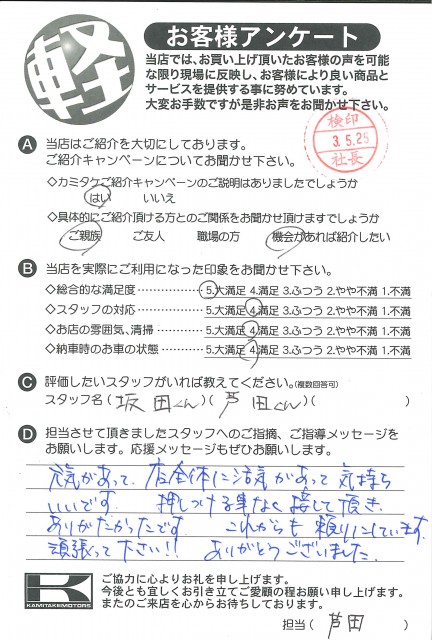 軽
お客様アンケート
当店では、お買い上げ頂いたお客様の声を可能
な限り現場に反映し、お客様により良い商品と
サービスを提供する事に努めています。
大変お手数ですが是非お声をお聞かせ下さい。
検印
3.5.25
社長
A 当店はご紹介を大切にしております。
ご紹介キャンペーンについてお聞かせ下さい。
◇カミタケご紹介キャンペーンのご説明はありましたでしょうか
はい いいえ
◇具体的にご紹介頂ける方とのご関係をお聞かせ頂けますでしょうか
ご親族 ご友人 職場の方 機会があれば紹介したい
B 当店を実際にご利用になった印象をお聞かせ下さい。
◇総合的な満足度 5.大満足 4.満足 3.ふつう 2.やや不満 1.不満
◇スタッフの対応 5.大満足 4.満足 3.ふつう 2.やや不満 1.不満
◇お店の雰囲気、清掃 5.大満足 4.満足 3.ふつう 2.やや不満 1.不満
◇納車時のお車の状態 5.大満足 4.満足 3.ふつう 2.やや不満 1.不満
C 評価したいスタッフがいれば教えてください。(複数回答可)
スタッフ名(坂田くん)(芦田くん)( )
D 担当させて頂きましたスタッフへのご指摘、ご指導メッセージを
お願いします。応援メッセージもぜひお願いします。
元気があって、店全体に活気があって気持ち
いいです。 押しつける事なく接して頂き、
ありがたかったです。 これからも頼りにしています。
頑張って下さい!! ありがとうございました。
K
KAMITAKEMOTORS
ご協力に心よりお礼を申し上げます。
今後とも宜しくお引き立てご愛顧の程お願い申し上げます。
またのご来店を心からお待ちしております。
担当(芦田)